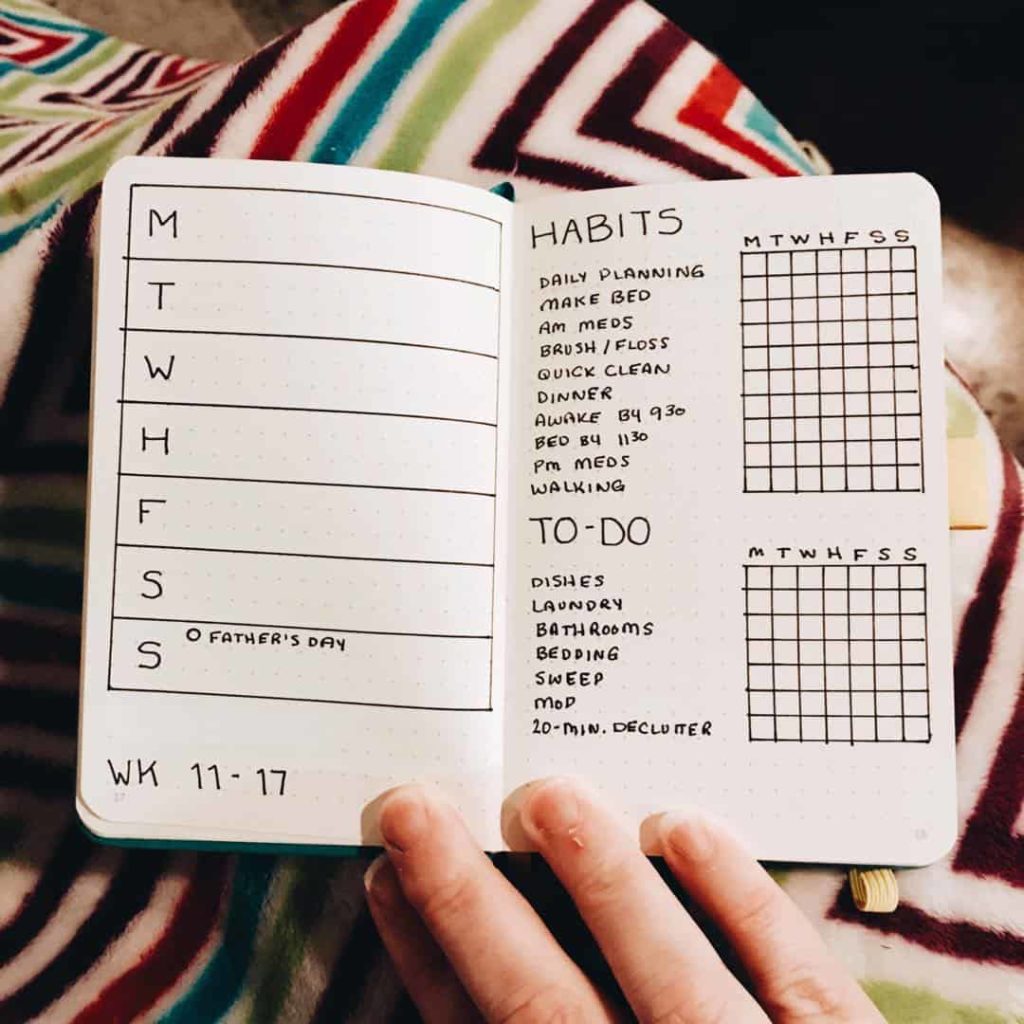 M
T
W
H
F
S
S
O FATHER'S DAY
WK 11-17
17
HABITS
M T W H F S S
DAILY PLANNING
MAKE BED
AM MEDS
BRUSH / FLOSS
QUICK CLEAN
DINNER
AWAKE BY 930
BED BY 1130
PM MEDS
WALKING
TO-DO
M T W H F S S
DISHES
LAUNDRY
BATHROOMS
BEDDING
SWEEP
MOP
20-MIN. DECLUTTER